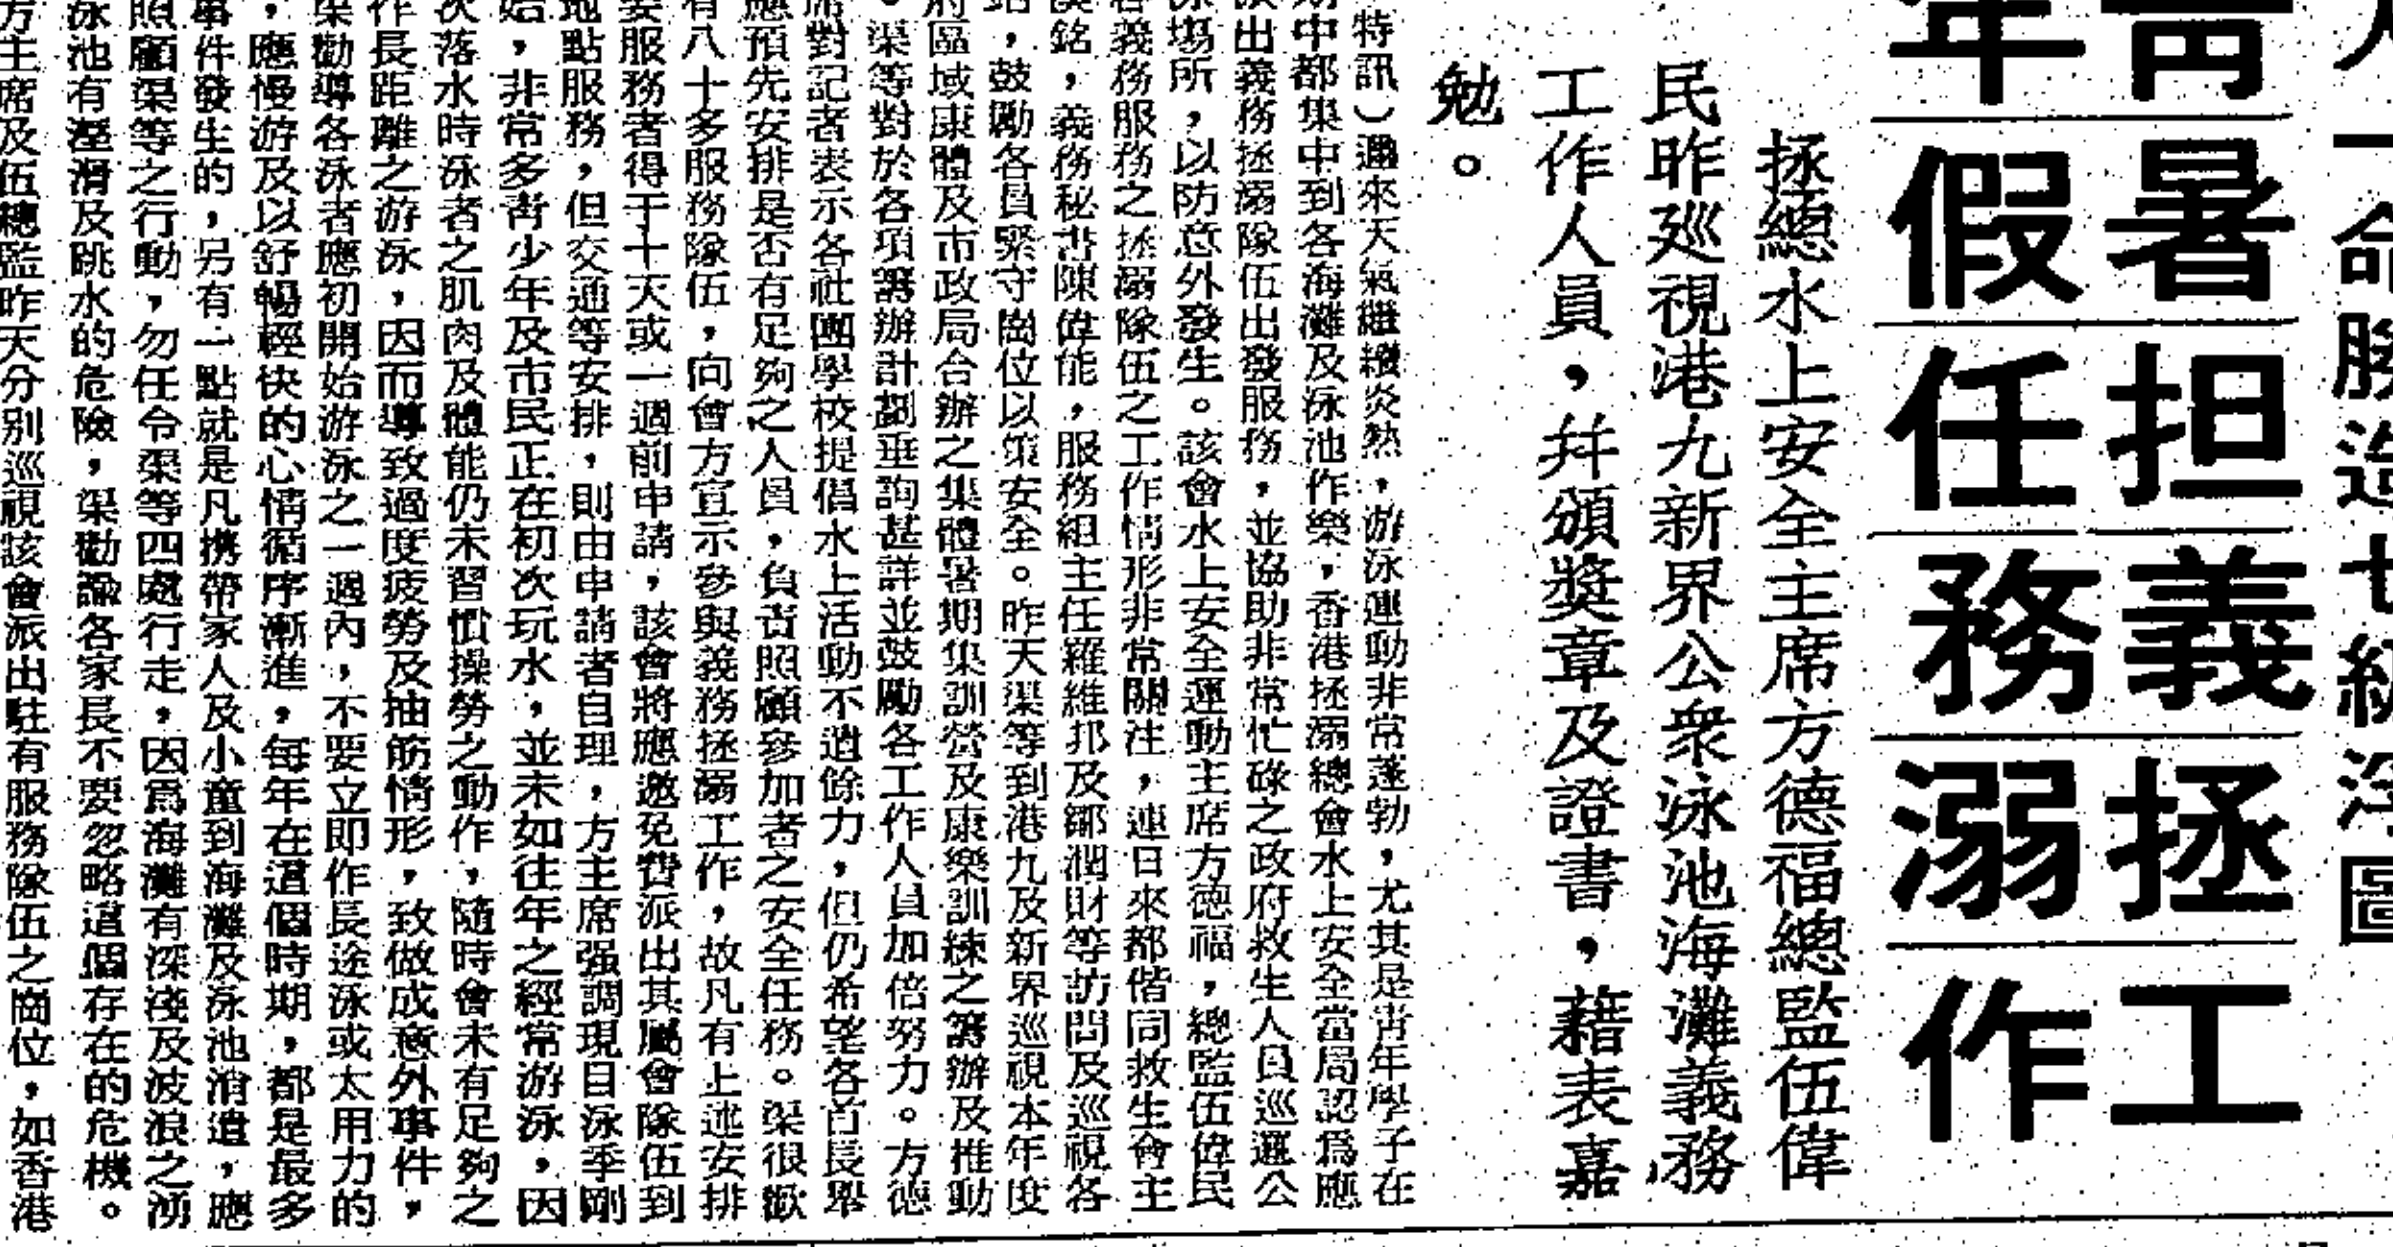 一命勝造七級浮圖
青年
暑假
担任
義務
拯溺
工作
拯總水上安全主席方德福總監伍偉
民昨巡視港九新界公衆泳池海灘義務
工作人員，并頒獎章及證書，藉表嘉
勉。
特訊）邇來天氣繼續炎熱，游泳運動非常蓬勃，尤其是青年學子在
期中都集中到各海灘及泳池作樂，香港拯溺總會水上安全當局認爲應
派出義務拯溺隊伍出發服務，並協助非常忙碌之政府救生人員巡邏公
泳場所，以防意外發生。該會水上安全運動主席方德福，總監伍偉民
各義務服務之拯溺隊伍之工作情形非常關注，連日來都偕同救生會主
漢銘，義務秘書陳偉能，服務組主任羅維邦及鄒潤財等訪問及巡視各
站，鼓勵各員緊守崗位以策安全。昨天渠等到港九及新界巡視本年度
府區域康體及市政局合辦之集體暑期集訓營及康樂訓練之籌辦及推動
。渠等對於各項籌辦計劃垂詢甚詳並鼓勵各工作人員加倍努力。方德
席對記者表示各社團學校提倡水上活動不遺餘力，但仍希望各首長舉
應預先安排是否有足夠之人員，負責照顧參加者之安全任務。渠很歡
有八十多服務隊伍，向會方宣示參與義務拯溺工作，故凡有上述安排
要服務者得于十天或一週前申請，該會將應邀免費派出其屬會隊伍到
地點服務，但交通等安排，則由申請者自理，方主席强調現目泳季剛
始，非常多青少年及市民正在初次玩水，並未如往年之經常游泳，因
次落水時泳者之肌肉及體能仍未習慣操勞之動作，隨時會未有足夠之
作長距離之游泳，因而導致過度疲勞及抽筋情形，致做成意外事件，
渠勸導各泳者應初開始游泳之一週內，不要立即作長途泳或太用力的
，應慢游及以舒暢輕快的心情循序漸進，每年在這個時期，都是最多
事件發生的，另有一點就是凡携帶家人及小童到海灘及泳池消遣，應
照顧渠等之行動，勿任令渠等四處行走，因爲海灘有深淺及波浪之湧
泳池有溼滑及跳水的危險，渠勸諭各家長不要忽略這個存在的危機。
方主席及伍總監昨天分別巡視該會派出駐有服務隊伍之崗位，如香港